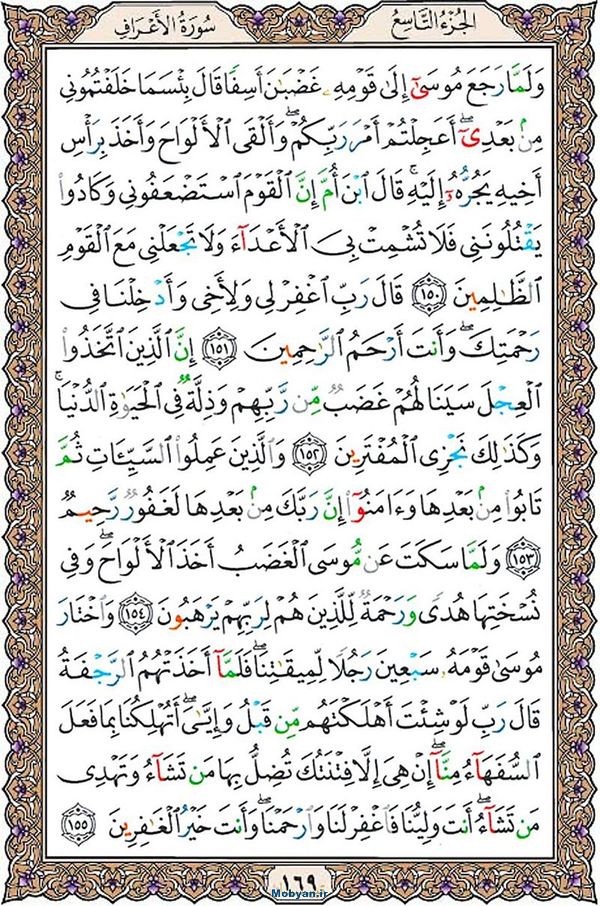 الجُزْءُ التَّاسِعُ
سُورَةُ الأَعْرَافِ
وَلَمَّا رَجَعَ مُوسَىٰٓ إِلَىٰ قَوْمِهِۦ غَضْبَٰنَ أَسِفًا قَالَ بِئْسَمَا خَلَفْتُمُونِى
مِنۢ بَعْدِىٓ ۖ أَعَجِلْتُمْ أَمْرَ رَبِّكُمْ ۖ وَأَلْقَى ٱلْأَلْوَاحَ وَأَخَذَ بِرَأْسِ
أَخِيهِ يَجُرُّهُۥٓ إِلَيْهِ ۚ قَالَ ٱبْنَ أُمَّ إِنَّ ٱلْقَوْمَ ٱسْتَضْعَفُونِى وَكَادُوا۟
يَقْتُلُونَنِى فَلَا تُشْمِتْ بِىَ ٱلْأَعْدَآءَ وَلَا تَجْعَلْنِى مَعَ ٱلْقَوْمِ
ٱلظَّٰلِمِينَ ١٥٠ قَالَ رَبِّ ٱغْفِرْ لِى وَلِأَخِى وَأَدْخِلْنَا فِى
رَحْمَتِكَ ۖ وَأَنتَ أَرْحَمُ ٱلرَّٰحِمِينَ ١٥١ إِنَّ ٱلَّذِينَ ٱتَّخَذُوا۟
ٱلْعِجْلَ سَيَنَالُهُمْ غَضَبٌ مِّن رَّبِّهِمْ وَذِلَّةٌ فِى ٱلْحَيَوٰةِ ٱلدُّنْيَا ۚ
وَكَذَٰلِكَ نَجْزِى ٱلْمُفْتَرِينَ ١٥٢ وَٱلَّذِينَ عَمِلُوا۟ ٱلسَّيِّـَٔاتِ ثُمَّ
تَابُوا۟ مِنۢ بَعْدِهَا وَءَامَنُوٓا۟ إِنَّ رَبَّكَ مِنۢ بَعْدِهَا لَغَفُورٌ رَّحِيمٌ
١٥٣ وَلَمَّا سَكَتَ عَن مُّوسَى ٱلْغَضَبُ أَخَذَ ٱلْأَلْوَاحَ ۖ وَفِى
نُسْخَتِهَا هُدًى وَرَحْمَةٌ لِّلَّذِينَ هُمْ لِرَبِّهِمْ يَرْهَبُونَ ١٥٤ وَٱخْتَارَ
مُوسَىٰ قَوْمَهُۥ سَبْعِينَ رَجُلًا لِّمِيقَٰتِنَا ۖ فَلَمَّآ أَخَذَتْهُمُ ٱلرَّجْفَةُ
قَالَ رَبِّ لَوْ شِئْتَ أَهْلَكْتَهُم مِّن قَبْلُ وَإِيَّٰىَ ۖ أَتُهْلِكُنَا بِمَا فَعَلَ
ٱلسُّفَهَآءُ مِنَّآ ۖ إِنْ هِىَ إِلَّا فِتْنَتُكَ تُضِلُّ بِهَا مَن تَشَآءُ وَتَهْدِى
مَن تَشَآءُ ۖ أَنتَ وَلِيُّنَا فَٱغْفِرْ لَنَا وَٱرْحَمْنَا ۖ وَأَنتَ خَيْرُ ٱلْغَٰفِرِينَ ١٥٥
١٦٩
Mobyan.ir